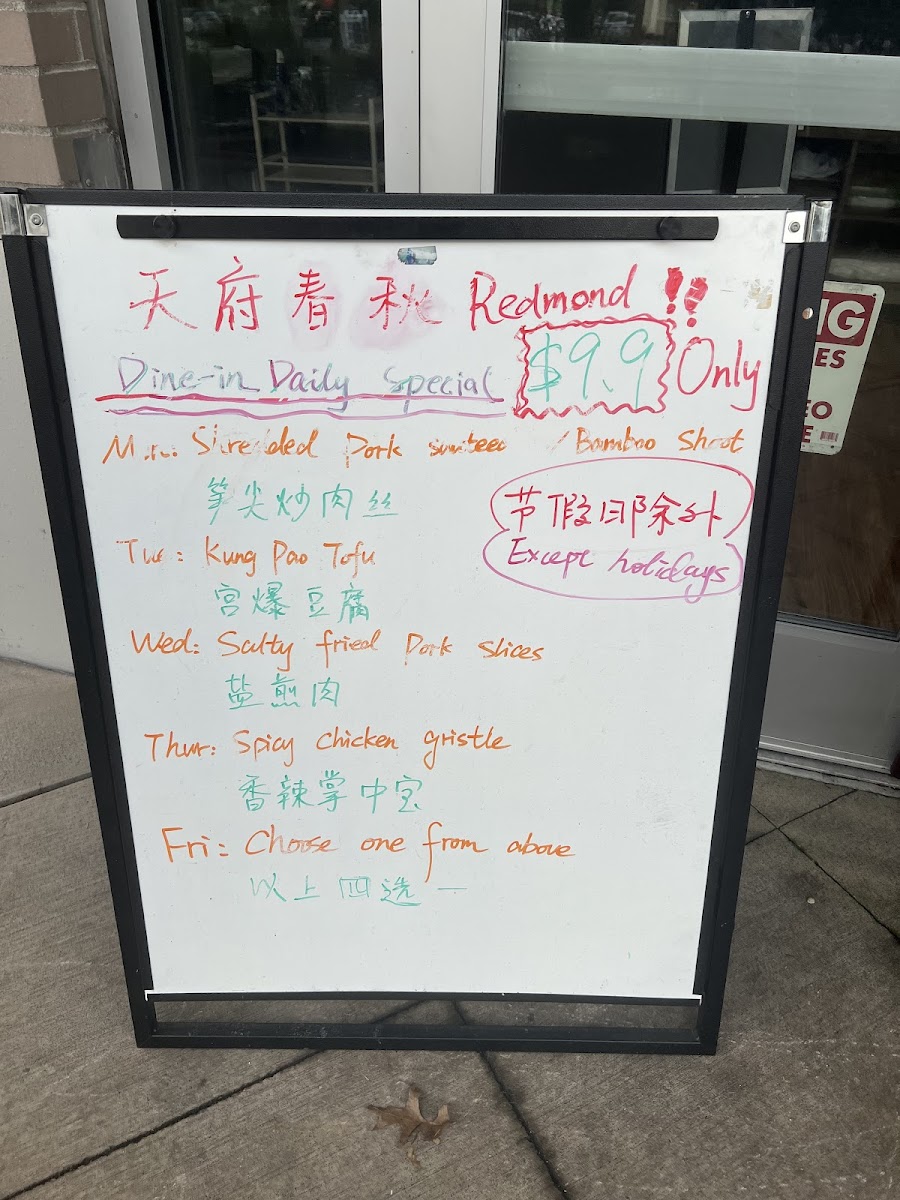 天府春秋 Redmond !!
Dine-in Daily Special $9.9 Only
Mon: Shredded Pork / Bamboo Shoot
笋尖炒肉丝
节假日除外
Except holidays
Tue: Kung Pao Tofu
宫爆豆腐
Wed: Salty fried Pork slices
盐煎肉
Thur: Spicy chicken gristle
香辣掌中宝
Fri: Choose one from above
以上四选一
G
ES
EO
E